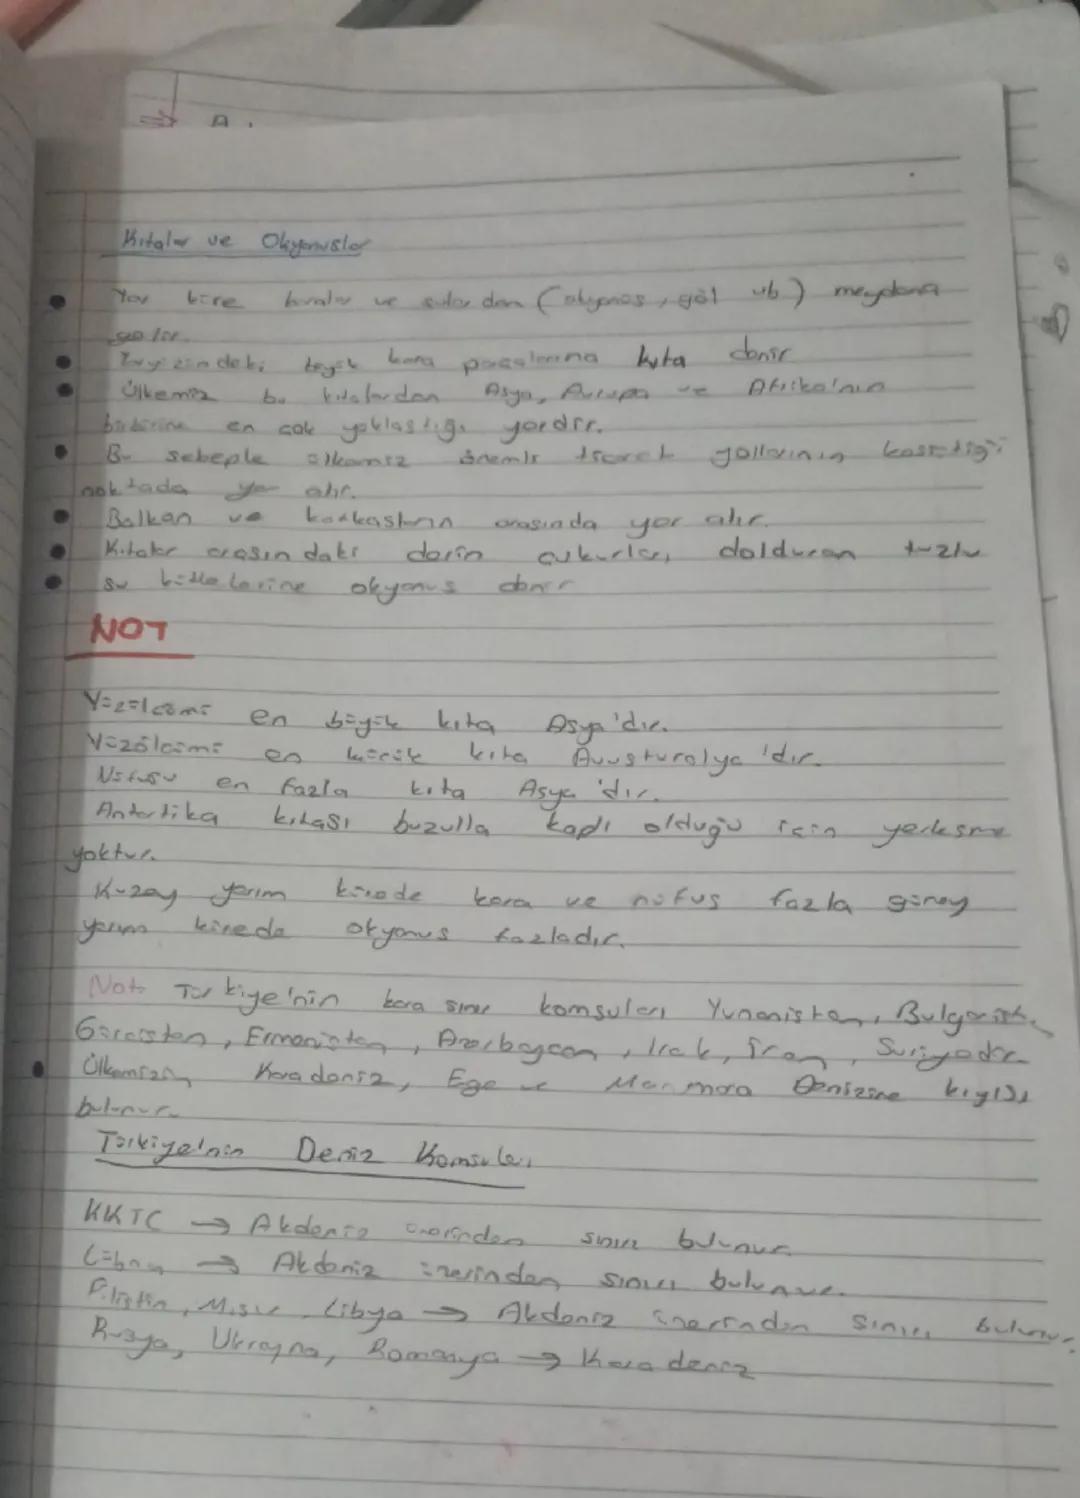 A.
Kıtalar ve Okyanuslar
Yer küre karalar ve sulardan (okyanus, göl vb) meydana
gelir.
Yeryüzündeki büyük kara parçalarına kıta denir
Ülkemiz bu kıtalardan Asya, Avrupa ve Afrika'nın
birbirine en çok yaklaştığı yerdir.
Bu sebeple ülkemiz önemli ticaret yollarının kesiştiği
noktada yer alır.
Balkan ve kafkasların arasında yer alır.
Kıtalar arasındaki derin çukurları dolduran tuzlu
su kütlelerine okyanus denir
NOT
Yüzölçümü en büyük kıta Asya'dır.
Yüzölçümü en küçük kıta Avusturalya'dır.
Nüfusu en fazla kıta Asya'dır.
Antartika kıtası buzulla kaplı olduğu için yerleşme
yoktur.
Kuzey yarım kürede kara ve nüfus fazla güney
yarım kürede okyanus fazladır.
Not: Türkiye'nin kara sınır komşuları Yunanistan, Bulgaristan,
Gürcistan, Ermenistan, Azerbaycan, Irak, İran, Suriyedir
Ülkemizin Karadeniz, Ege ve Marmara Denizine kıyısı
bulunur.
Türkiye'nin Deniz Komşuları
KKTC → Akdeniz üzerinden sınırı bulunur
Lübnan → Akdeniz üzerinden sınırı bulunur.
Filistin, Mısır, Libya → Akdeniz üzerinden sınırı bulunur.
Rusya, Ukrayna, Romanya → Karadeniz